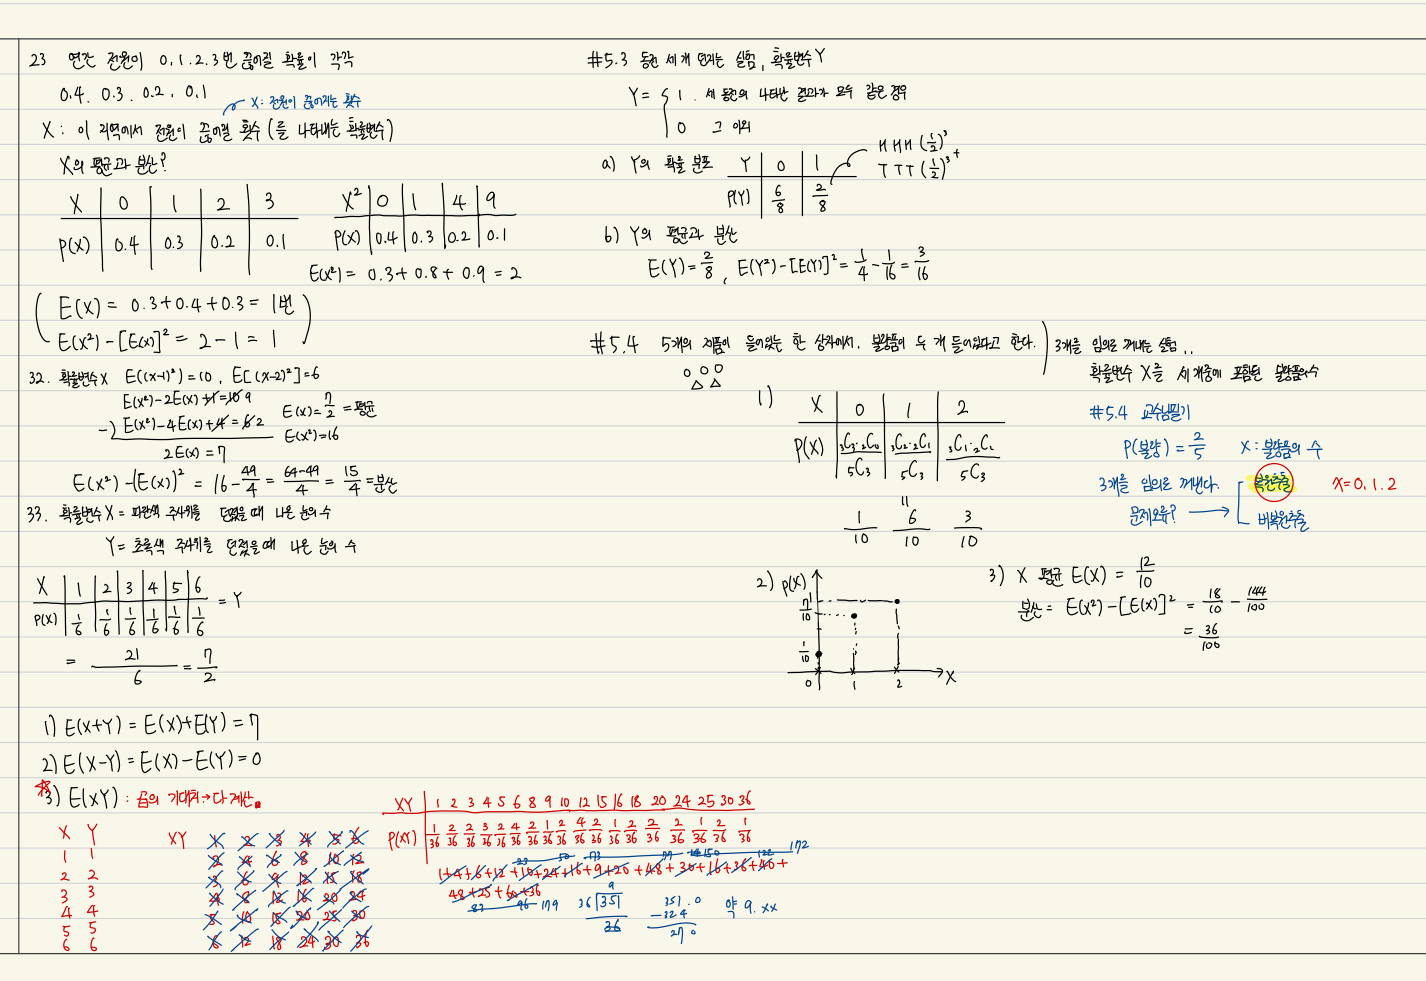 23 연간 전원이 0, 1, 2, 3번 끊어질 확률이 각각
0.4, 0.3, 0.2, 0.1
X: 전원이 끊어지는 횟수
X: 이 지역에서 전원이 끊어질 횟수 (를 나타내는 확률변수)
X의 평균과 분산?
X 0 1 2 3
P(X) 0.4 0.3 0.2 0.1
X² 0 1 4 9
P(X) 0.4 0.3 0.2 0.1
E(X²) = 0.3+0.8+0.9 = 2
E(X) = 0.3+0.4+0.3 = 1번
E(X²)-[E(X)]² = 2-1 = 1
32. 확률변수 X E((X-1)²)=10, E[(X-2)²]=6
E(X²)-2E(X)+1=10 9
-) E(X²)-4E(X)+4=6 2
2E(X)=7
E(X)=7/2=평균
E(X²)=16
E(X²)-(E(X))² = 16-49/4 = 64-49/4 = 15/4=분산
33. 확률변수 X = 파란색 주사위를 던졌을 때 나온 눈의 수
Y= 초록색 주사위를 던졌을 때 나온 눈의 수
X 1 2 3 4 5 6
P(X) 1/6 1/6 1/6 1/6 1/6 1/6 = Y
= 21/6 = 7/2
1) E(X+Y) = E(X)+E(Y) = 7
2) E(X-Y) = E(X)-E(Y) = 0
3) E(XY) : 곱의 기대치→다 계산.
X Y
1 1
2 2
3 3
4 4
5 5
6 6
XY 1 2 3 4 5 6
2 4 6 8 10 12
3 6 9 12 15 18
4 8 12 16 20 24
5 10 15 20 25 30
6 12 18 24 30 36
XY 1 2 3 4 5 6 8 9 10 12 15 16 18 20 24 25 30 36
P(XY) 1/36 2/36 2/36 3/36 2/36 4/36 2/36 1/36 2/36 4/36 2/36 1/36 2/36 2/36 2/36 1/36 2/36 1/36
1+4+6+12+10+24+16+9+20+48+30+16+36+40+
48+25+60+36
172
179
9
36 351
36
351.0
-324
270
약 9.xx
#5.3 동전 세 개 던지는 실험, 확률변수 Y
Y= 1. 세 동전의 나타난 결과가 모두 같은 경우
0 그 이외
a) Y의 확률 분포
Y 0 1
P(Y) 6/8 2/8
HHH (1/2)³
TTT (1/2)³ +
b) Y의 평균과 분산
E(Y)=2/8, E(Y²)-[E(Y)]²=1/4-1/16=3/16
#5.4 5개의 제품이 들어있는 한 상자에서, 불량품이 두 개 들어있다고 한다. 3개를 임의로 꺼내는 실험..
확률변수 X를 세 개중에 포함된 불량품의 수
1)
X 0 1 2
P(X) ₃C₃·₂C₀/5C₃ ₃C₂·₂C₁/5C₃ ₃C₁·₂C₂/5C₃
=
1/10 6/10 3/10
#5.4 교수님필기
P(불량) = 2/5 X: 불량품의 수
3개를 임의로 꺼낸다. 복원추출 X=0, 1, 2
문제오류? → 비복원추출
2) P(X)
1
7/10
1/10
0 1 2 X
3) X 평균 E(X) = 12/10
분산= E(X²)-[E(X)]² = 18/10 - 144/100
= 36/100